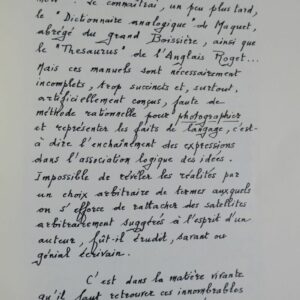 Je connaîtrai, un peu plus tard,
le "Dictionnaire analogique" de Maquet,
abrégé du grand Boissière, ainsi que
le "Thesaurus" de l'Anglais Roget...
Mais ces manuels sont nécessairement
incomplets, trop succincts et, surtout,
artificiellement conçus, faute de
méthode rationnelle pour photographier
et représenter les faits de langage, c'est-
à dire l'enchaînement des expressions
dans l'association logique des idées.
Impossible de révéler les réalités par
un choix arbitraire de termes auxquels
on s'efforce de rattacher des satellites
arbitrairement suggérés à l'esprit d'un
auteur, fût-il érudit, savant ou
génial écrivain.
C'est dans la matière vivante
qu'il faut retrouver ces innombrables